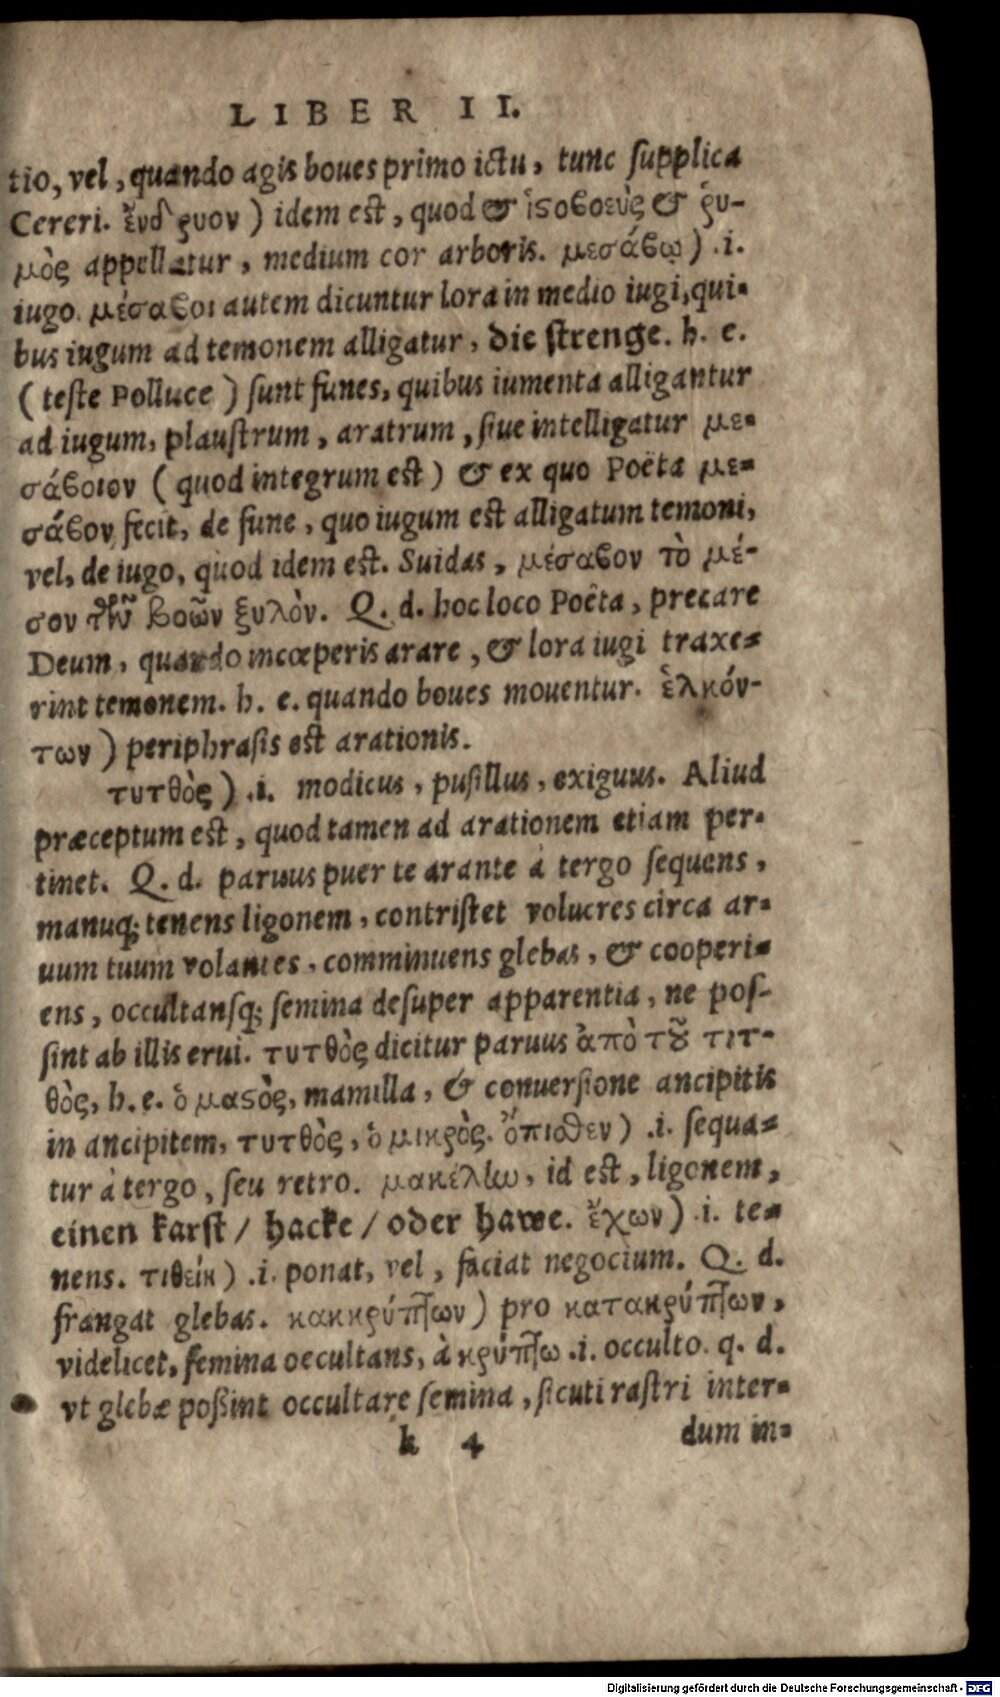 LIBER II.
tio, vel, quando agis boues primo ictu, tunc ſupplica
Cereri. ἔνδρυον) idem eſt, quod & ἱϛοβοεὺς & ῥυ-
μὸς appellatur, medium cor arboris. μεσάβῳ) .i.
iugo. μέσαβοι autem dicuntur lora in medio iugi, qui-
bus iugum ad temonem alligatur, die ſtrenge. h. e.
(teſte Polluce) ſunt funes, quibus iumenta alligantur
ad iugum, plauſtrum, aratrum, ſiue intelligatur με-
σάβοιον (quod integrum eſt) & ex quo Poëta με-
σάβον fecit, de fune, quo iugum eſt alligatum temoni,
vel, de iugo, quod idem eſt. Suidas, μέσαβον τὸ μέ-
σον τῶν βοῶν ξυλὸν. Q. d. hoc loco Poëta, precare
Deum, quando incœperis arare, & lora iugi traxe-
rint temonem. h. e. quando boues mouentur. ἑλκόν-
των) periphraſis est arationis.
τυτθὸς) .i. modicus, puſillus, exiguus. Aliud
præceptum eſt, quod tamen ad arationem etiam per-
tinet. Q. d. paruus puer te arante à tergo ſequens,
manuq; tenens ligonem, contriſtet volucres circa ar-
uum tuum volantes, comminuens glebas, & cooperi-
ens, occultansq; ſemina deſuper apparentia, ne poſ-
ſint ab illis erui. τυτθὸς dicitur paruus ἀπὸ τοῦ τιτ-
θὸς, h. e. ὁ μαϛὸς, mamilla, & conuerſione ancipitis
in ancipitem, τυτθὸς, ὁ μικρὸς. ὄπισθεν) .i. ſequa-
tur à tergo, ſeu retro. μακέλην, id eſt, ligonem,
einen karſt / hacke / oder hawe. ἔχων) .i. te-
nens. τιθείη) .i. ponat, vel, faciat negocium. Q. d.
frangat glebas. κακκρύπτων) pro κατακρύπτων,
videlicet, ſemina occultans, à κρύπτω .i. occulto. q. d.
vt glebæ poßint occultare ſemina, ſicuti raſtri inter-
k 4 dum in-
Digitalisierung gefördert durch die Deutsche Forschungsgemeinschaft - DFG